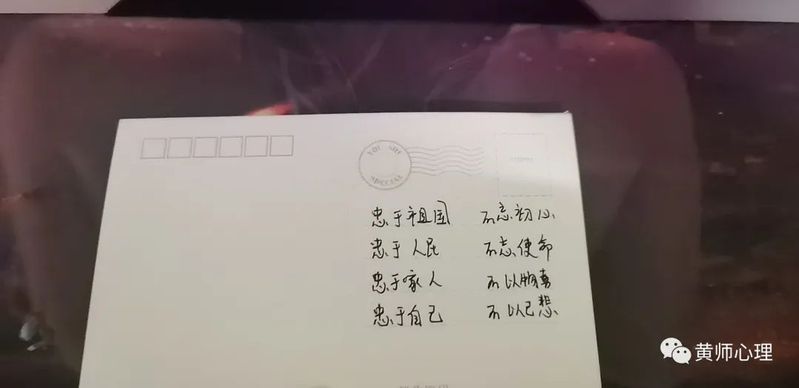 YOU ARE
SPECIAL
忠于祖国 不忘初心
忠于人民 不忘使命
忠于家人 不以
忠于自己 不以己想
黄师心理